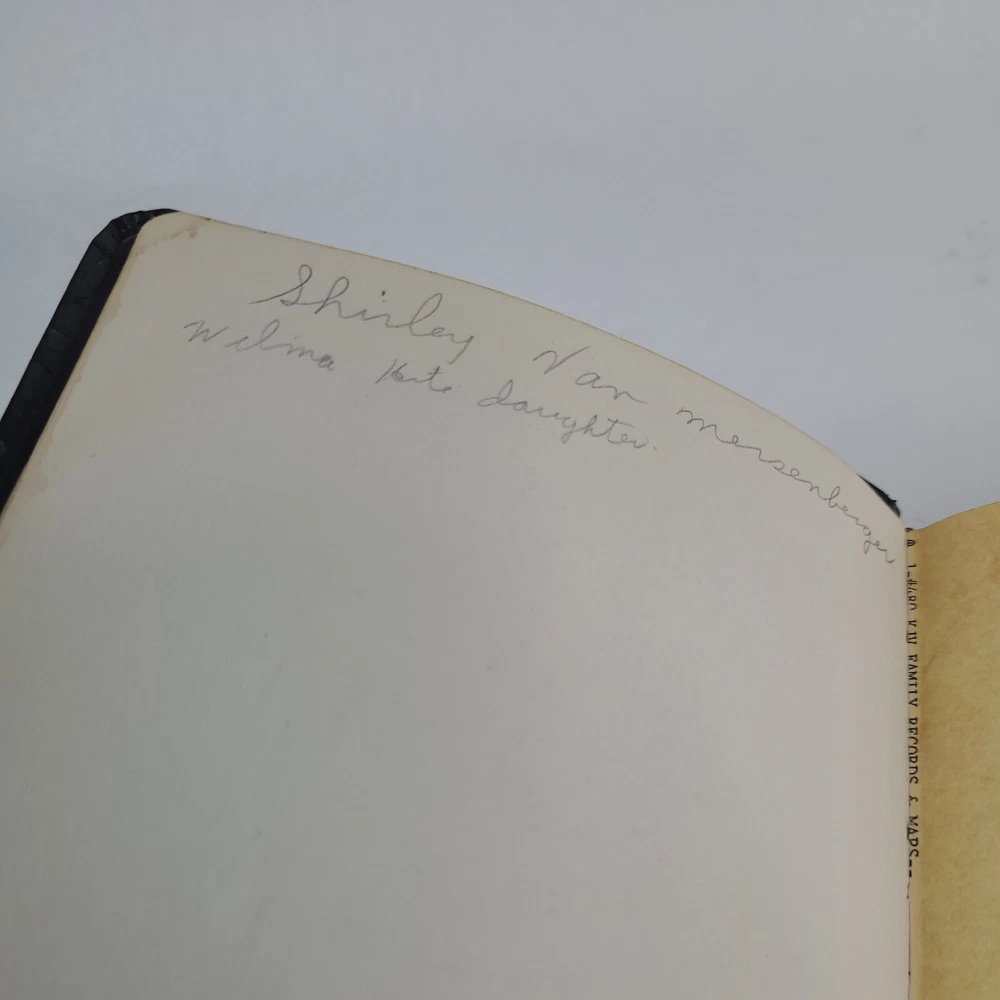 Shirley Van Mersenberger
Wilma Kate daughter.
KJV FAMILY RECORDS & MAPS--